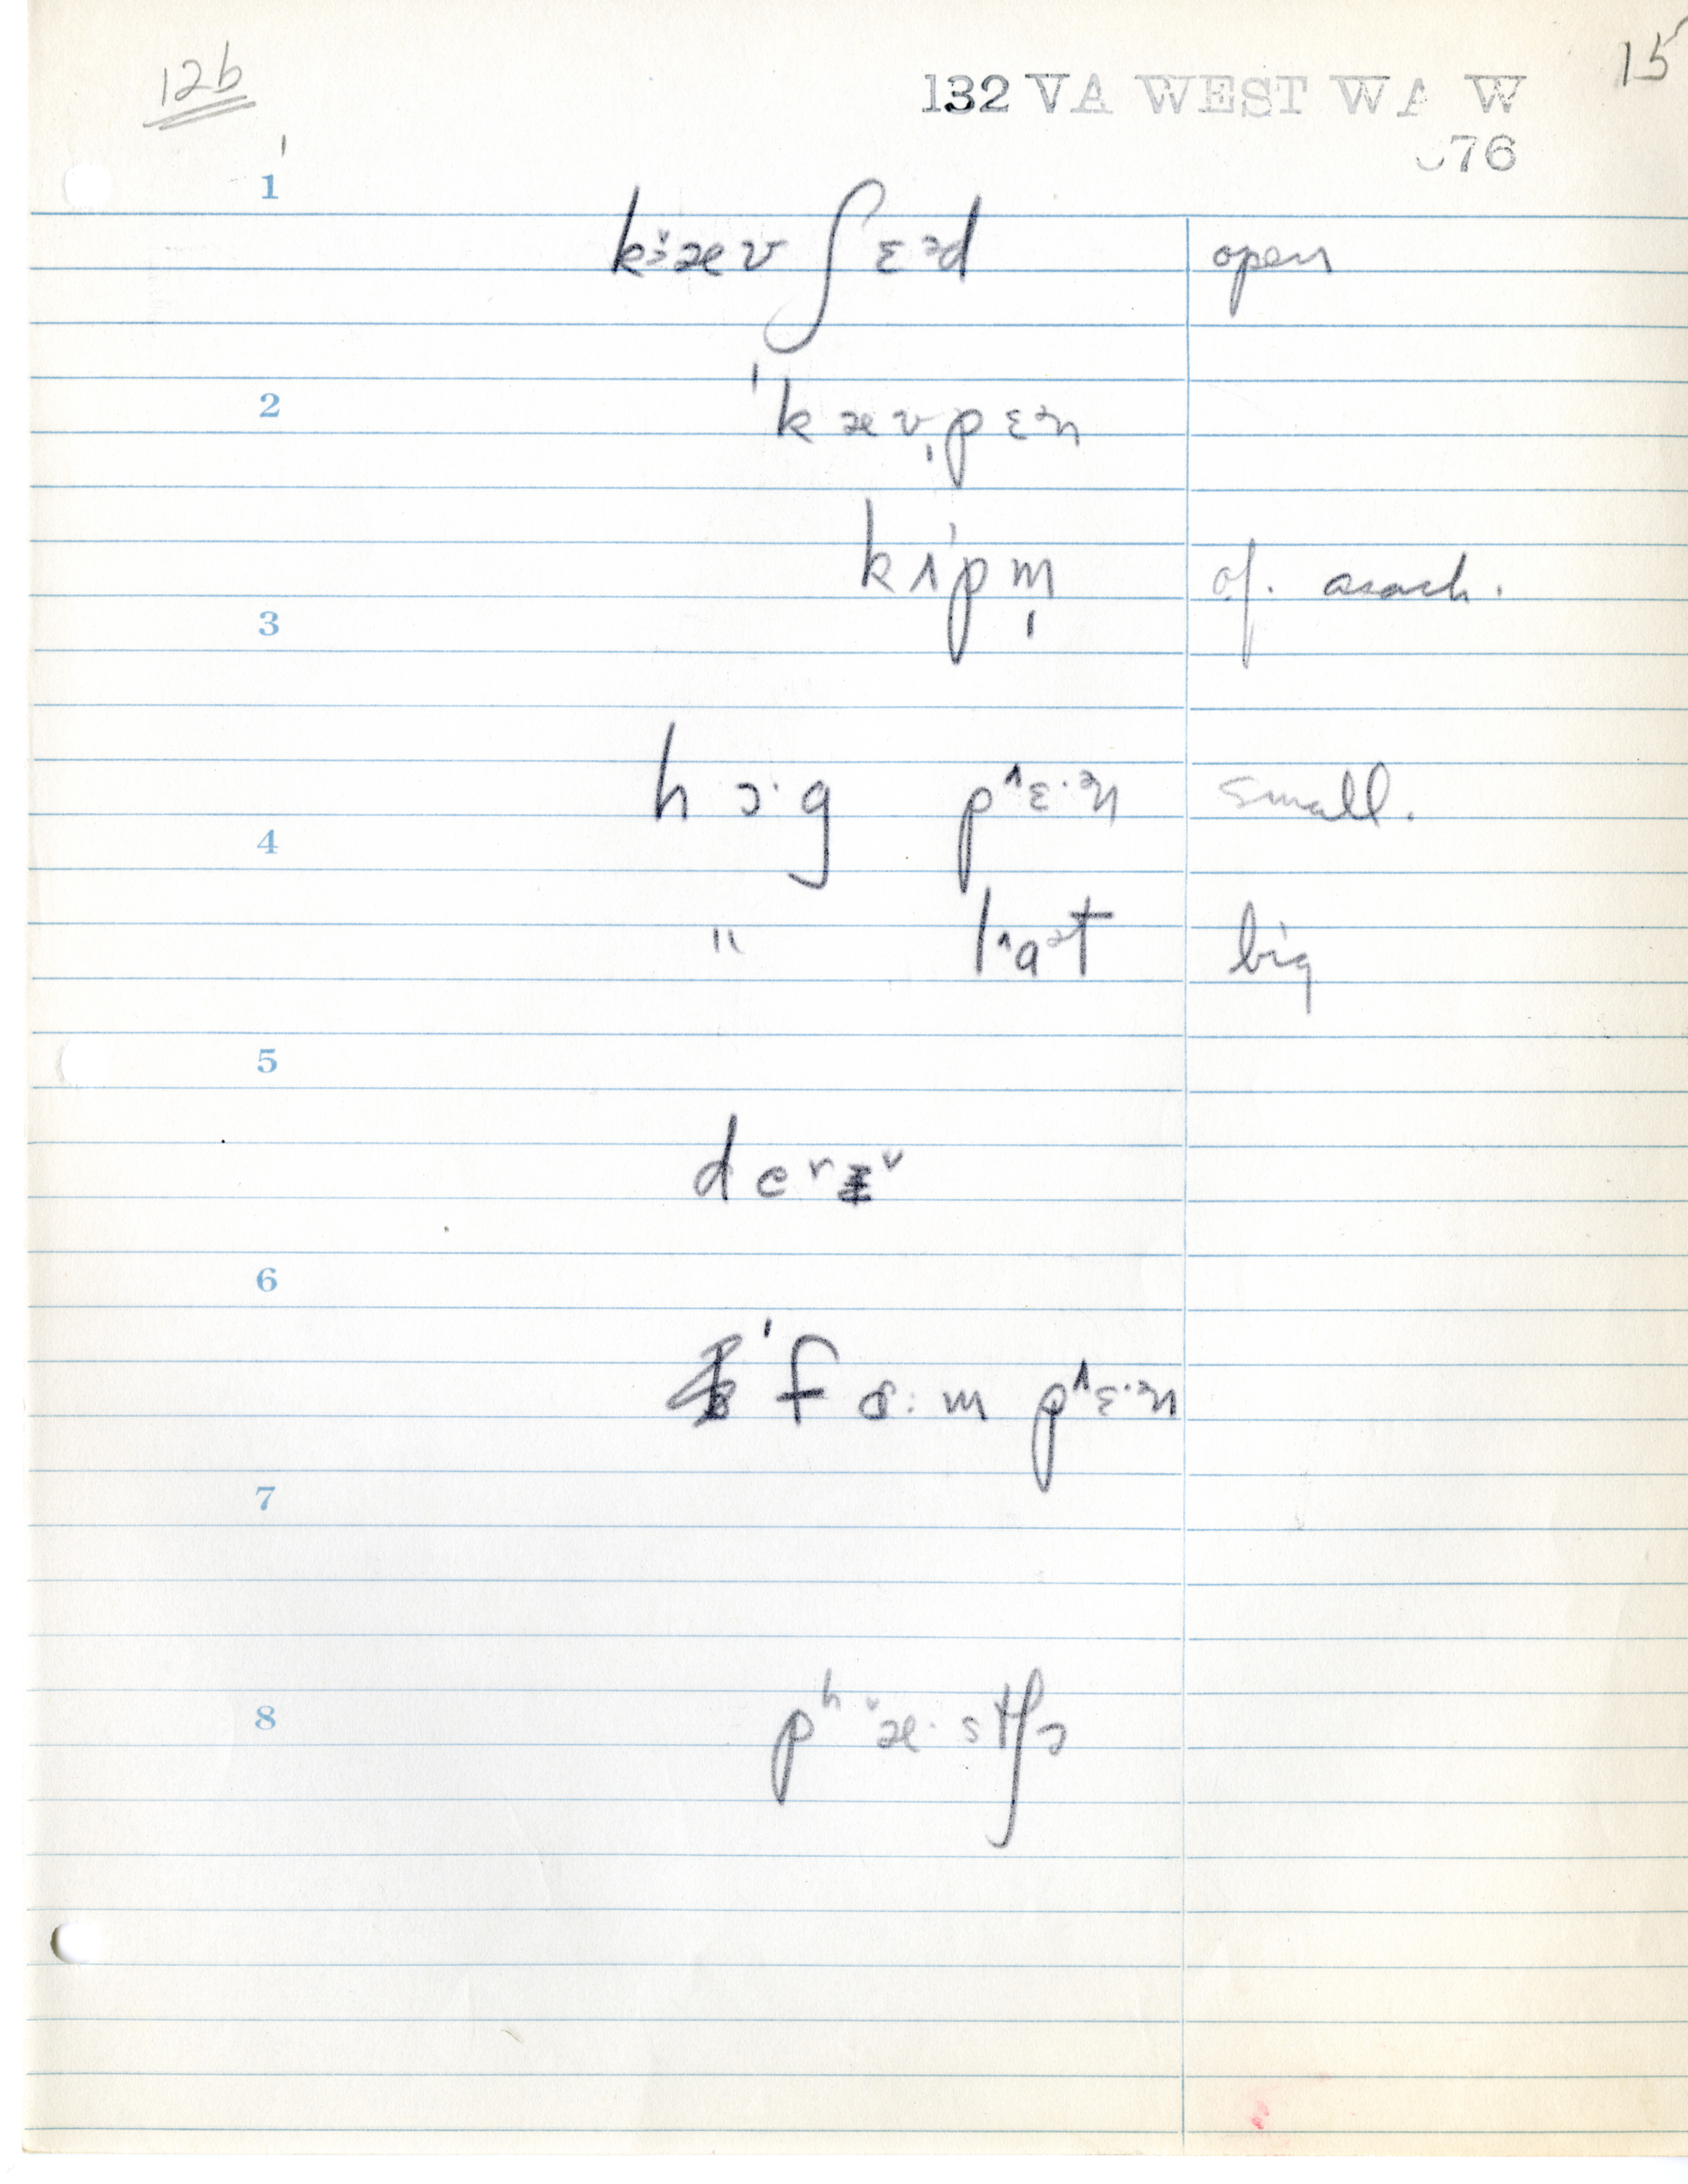 12b
15
132 VA WEST WA W
76
1
kɜ̆æv ʃɛᵊd open
2
ˈkævˌpɛᵊn
kʌˈpm̩ of. asach.
3
hɔ·g p^ɛ·ᵊn small.
4
" l^aᵊt big
5
deʳɪ˅
6
ˈfɑ:m p^ɛ·ᵊn
7
8
pʰ˅æ·stʃɔ